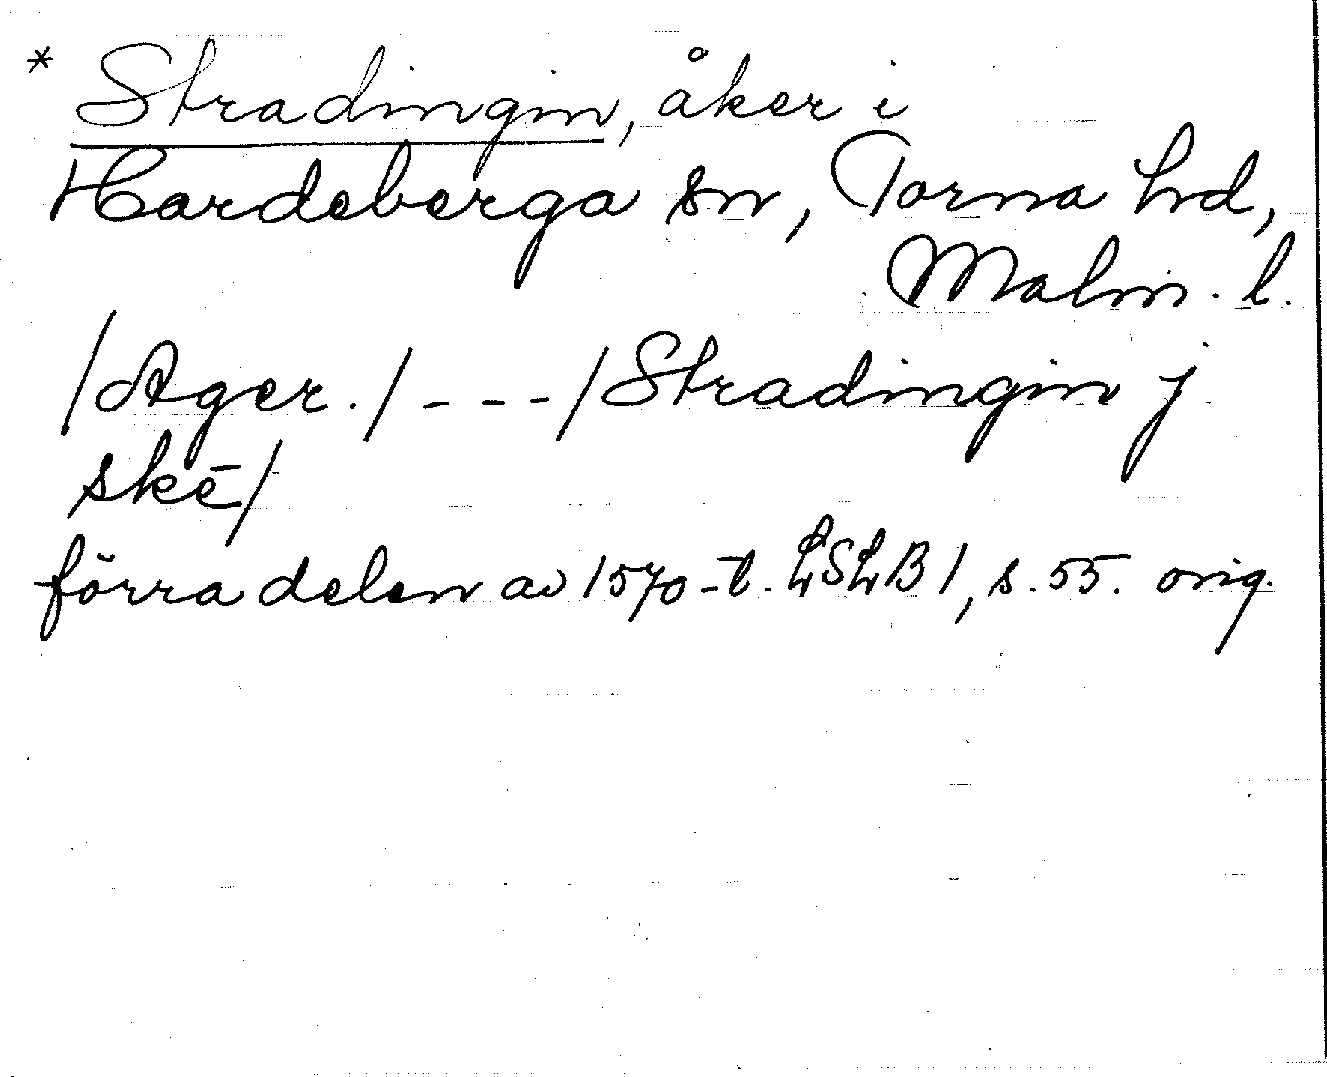 * Stradingin, åker i
Hardeberga sn, Torna hd,
Malm. l.
/Ager./ - - - /Stradingin j
skē/
förra delen av 1570-t. LSLB 1, s. 55. orig.